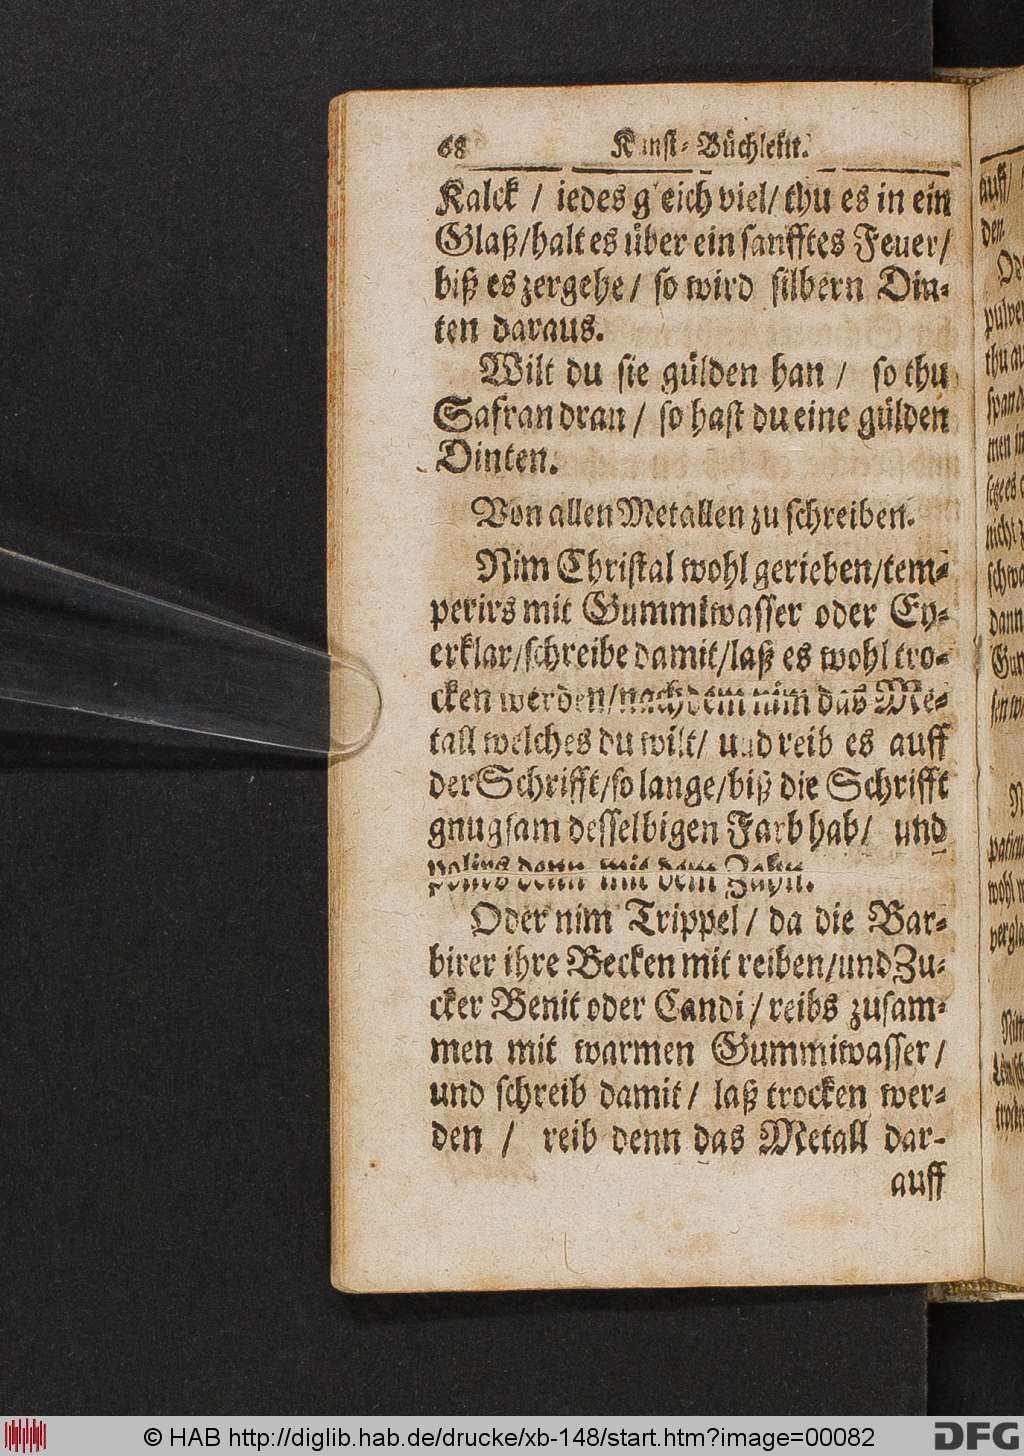 68 Kunst-Büchlein.
Kalck / iedes gleich viel / thu es in ein
Glaß / halt es über ein sanfftes Feuer /
biß es zergehe / so wird silbern Din-
ten daraus.
Wilt du sie gülden han / so thu
Safran dran / so hast du eine gülden
Dinten.
Von allen Metallen zu schreiben.
Nim Christal wohl gerieben / tem-
perirs mit Gummiwasser oder Ey-
erklar / schreibe damit / laß es wohl tro-
cken werden / nachdem nim das Me-
tall welches du wilt / und reib es auff
der Schrifft / so lange / biß die Schrifft
gnugsam desselbigen Farb hab / und
polirs denn mit dem Zahn.
Oder nim Trippel / da die Bar-
birer ihre Becken mit reiben / und Zu-
cker Benit oder Candi / reibs zusam-
men mit warmen Gummiwasser /
und schreib damit / laß trocken wer-
den / reib denn das Metall dar-
auff
auff /
den.
© HAB http://diglib.hab.de/drucke/xb-148/start.htm?image=00082
DFG